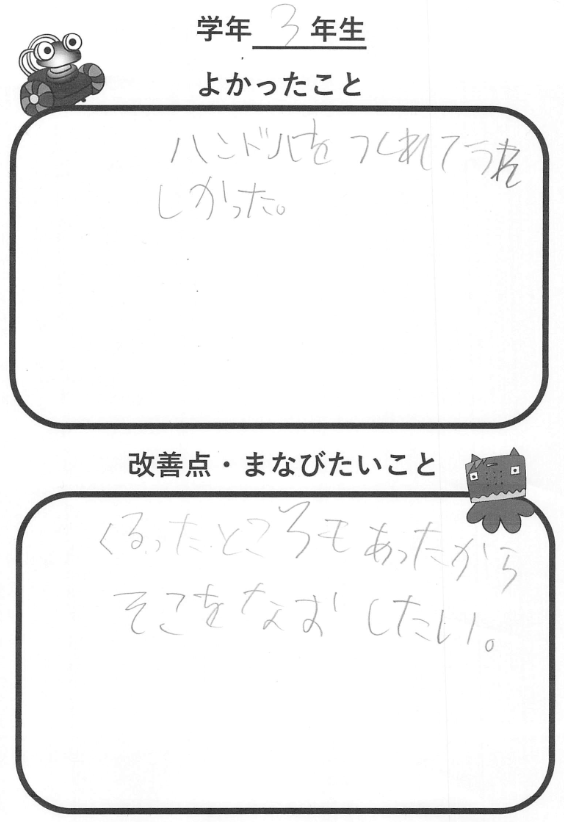 学年 3 年生
よかったこと
ハンドルを つくれてうれ
しかった。
改善点・まなびたいこと
くるったところもあったから
そこをなおしたい。